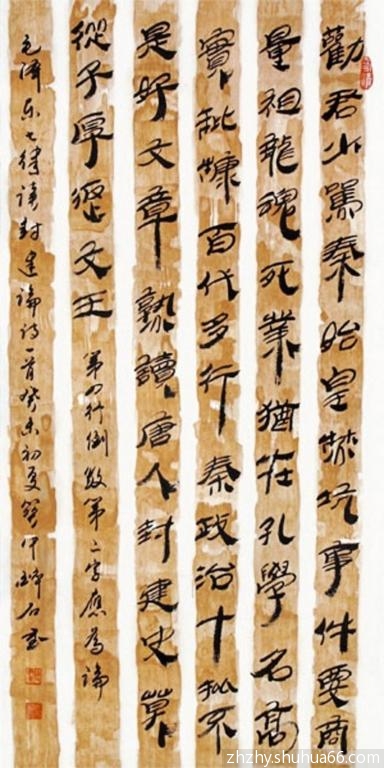 勸君少罵秦始皇焚坑事件要商
量祖龍魂死業猶在孔學名高
實秕糠百代多行秦政治十批不
是好文章熟讀唐人封建史莫
從子厚返文王 第四行倒數第二字應為論
毛澤东七律讀封建論詩一首癸未初夏
zhzhy.shuhua66.com